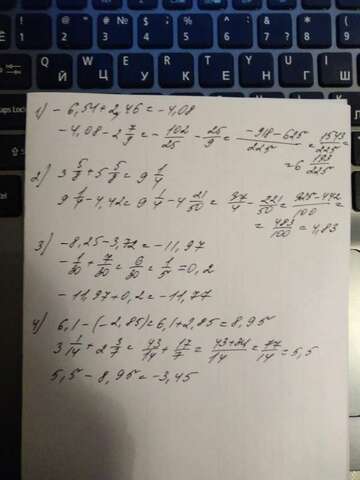 1) -6,54+2,46=-4,08
-4,08-2 7/9=-102/25-25/9=(-918-625)/225=1543/225=
=6 193/225
2) 3 5/8+5 5/8=9 1/4
9 1/4-4,42=9 1/4-4 21/50=37/4-221/50=(925-442)/100=
=483/100=4,83
3) -8,25-3,72=-11,97
-1/30+7/30=6/30=1/5=0,2
-11,97+0,2=-11,77
4) 6,1-(-2,85)=6,1+2,85=8,95
3 1/14+2 3/7=43/14+17/7=(43+34)/14=77/14=5,5
5,5-8,95=-3,45